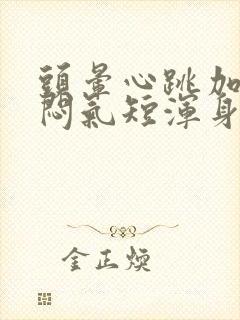 頭暈心跳加
悶氣短渾身
金正煥